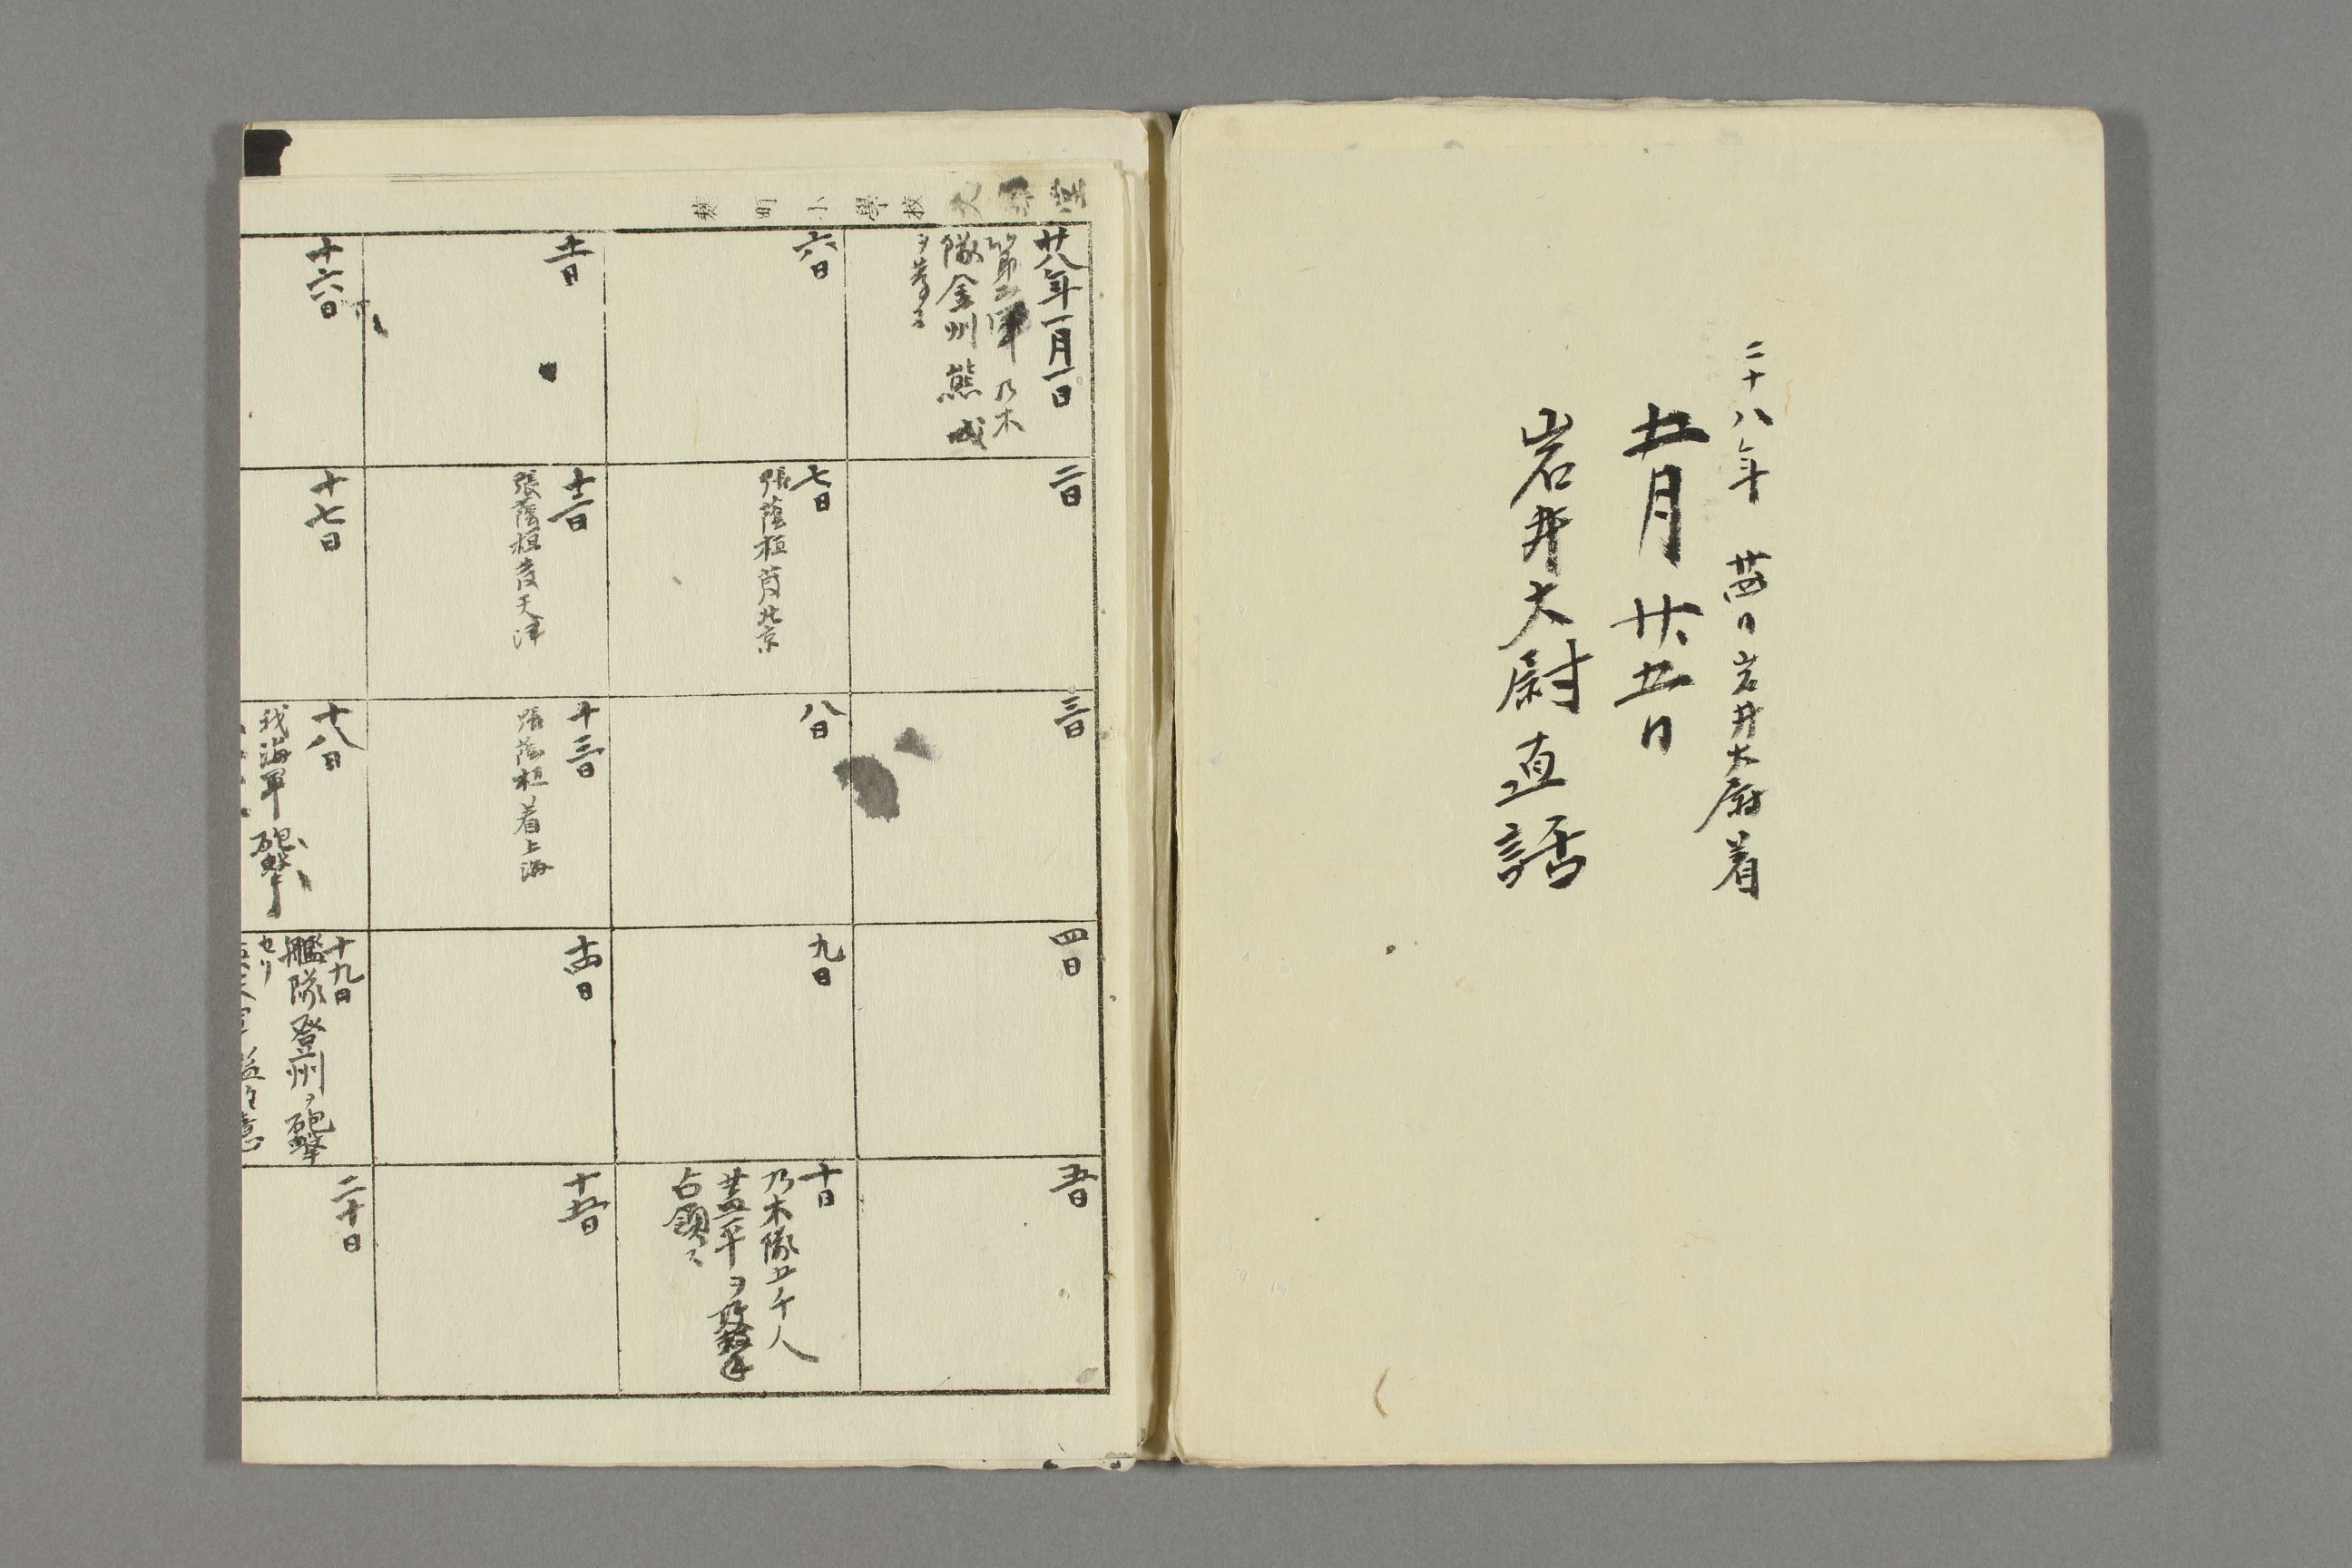 二十八年 廿四日岩井大尉着
五月廿五日
岩井大尉直話
町小學校
廿八年一月一日
第二軍乃木
隊金州熊成
ヲ發ス
二日
三日
四日
五日
六日
七日
張蔭桓發北京
八日
九日
十日
乃木隊五千人
蓋平ヲ攻撃
占領ス
十一日
十二日
張蔭桓發天津
十三日
張蔭桓着上海
十四日
十五日
十六日
十七日
十八日
我海軍砲撃
十九日
艦隊登州ヲ砲撃
セリ
二十日